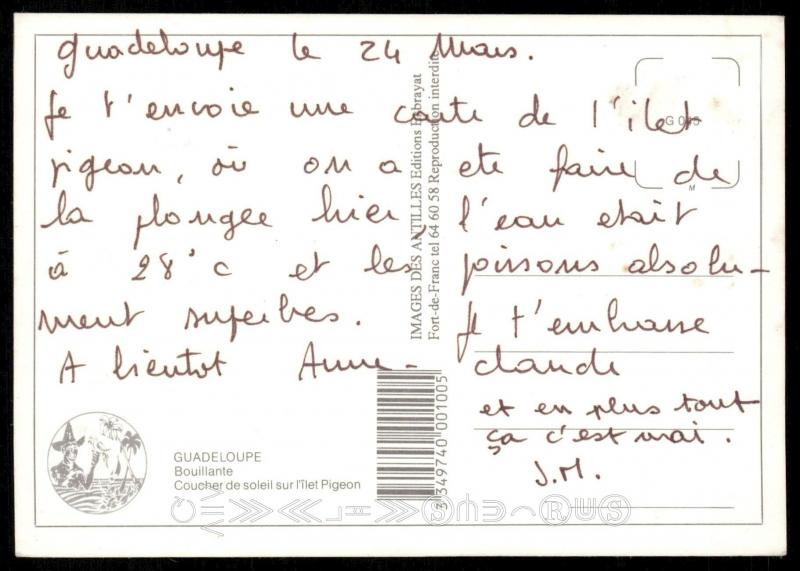 Guadeloupe le 24 Mars.
Je t'envoie une carte de l'ilet
pigeon, où on a ete faire de
la plongée hier, l'eau etait
à 28°c et les poissons absolu-
ment superbes. Je t'embrasse
A bientot Anne- claude
et en plus tout
ça c'est vrai.
J.M.
IMAGES DES ANTILLES Editions Exbrayat
Fort-de-Franc tel 64 60 58 Reproduction interdite
M
3 349740 001005
GUADELOUPE
Bouillante
Coucher de soleil sur l'îlet Pigeon